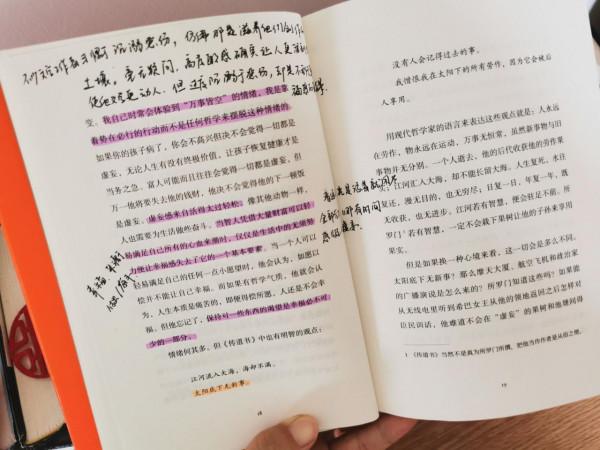 沉溺悲伤，仿佛那是滋养他们创作
土壤。毫无疑问，高度敏感确实让人更深刻
更动人。但过度沉溺于悲伤，却是不利于
变：我自己时常会体验到“万事皆空”的情绪，我是靠
着势在必行的行动而不是任何哲学来摆脱这种情绪的。
如果你的孩子病了，你会不高兴但决不会觉得一切都是
虚妄，无论人生有没有终极价值，让孩子恢复健康才是
当务之急。富人可能而且往往会觉得一切都是虚妄，但
万一他将要失去他的钱财，他决不会觉得他的下一顿饭
是虚妄。虚妄感来自活得太过轻松。像其他动物一样，
人也需要为生活 奋斗。当智人凭借大量财富可以轻
易满足自己所有的心血来潮时，仅仅是生活中的无须努
力 让幸福感失去了它的一个基本要素。当一个人可以
轻易满足自己的任何一点小愿望时，他会认为，如愿以
偿并不能让自己幸福。而如果有哲学气质，他就会认
为，人生本质是痛苦的，即便得偿所愿，人还是不会幸
福。但他忘记了，保持对一些东西的渴望是幸福必不可
少的一部分。
情绪何其多，但《传道书》中也有明智的观点：
江河流入大海，海却不满。
太阳底下无新事。
18
没有人会记得过去的事。
我憎恨我在太阳下的所有劳作，因为它会被后
人享用。
用现代哲学家的语言来表达这些观点就是：人永远
在劳作，物永远在运动，万事无恒常，虽然新事物与旧
事物并无分别。一个人逝去，他的后代收获他的劳作果
实；江河汇入大海，却不能长留大海。人生复死，水往
复还，漫无目的，也无穷尽，日复一日，年复一年，既
无收获，也无进步。江河若有智慧，便会驻足不前。所
罗门若有智慧，一定不会栽下果树让他的子孙来享用
果实。
但是如果换一种心境来看，这一切会是多么不同。
太阳底下无新事？那么摩天大厦、航空飞机和政治家
的广播演说是怎么来的？所罗门知道这些吗？如果能
从无线电里听到希巴女王从他的领地返回之后怎样对
臣民训话，他难道不会在“虚妄”的果树和他睡间得
1 《传道书》当然不是真为所罗门所撰，把他当作作者是从俗之便。
19